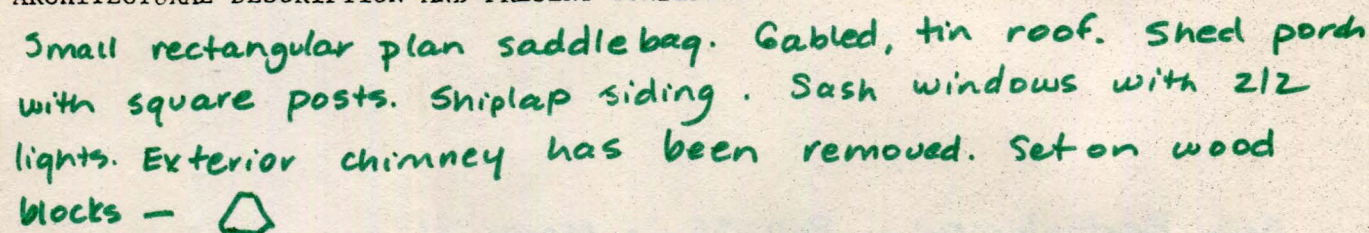 Small rectangular plan saddlebag. Gabled, tin roof. Shed porch
with square posts. Shiplap siding. Sash windows with 2/2
lights. Exterior chimney has been removed. Set on wood
blocks —